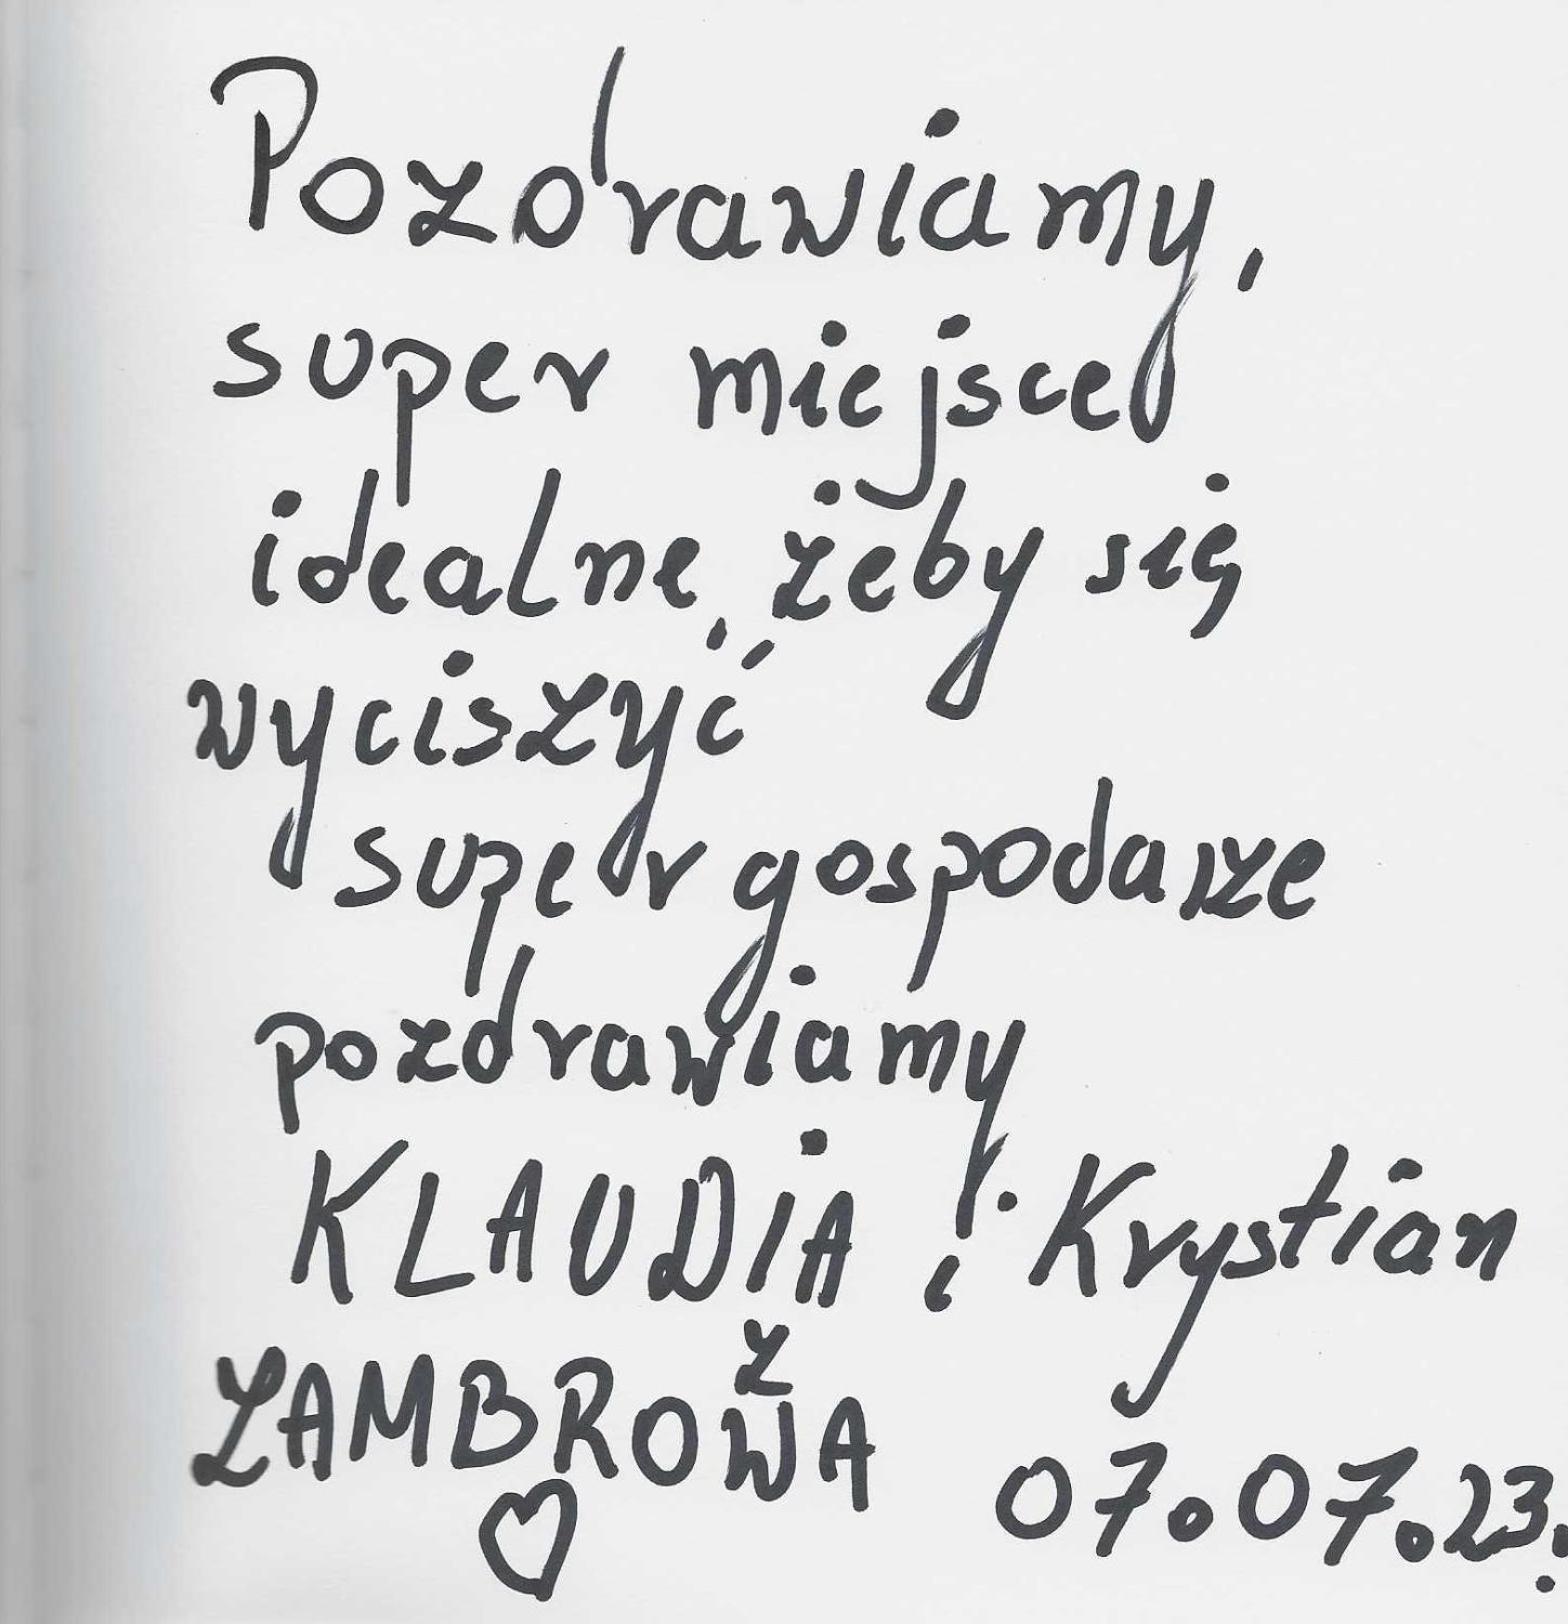 Pozdrawiamy,
super miejsce
idealne, żeby się
wyciszyć
super gospodarze
pozdrawiamy
KLAUDiA i Krystian
z
ZAMBROWA
07.07.23.